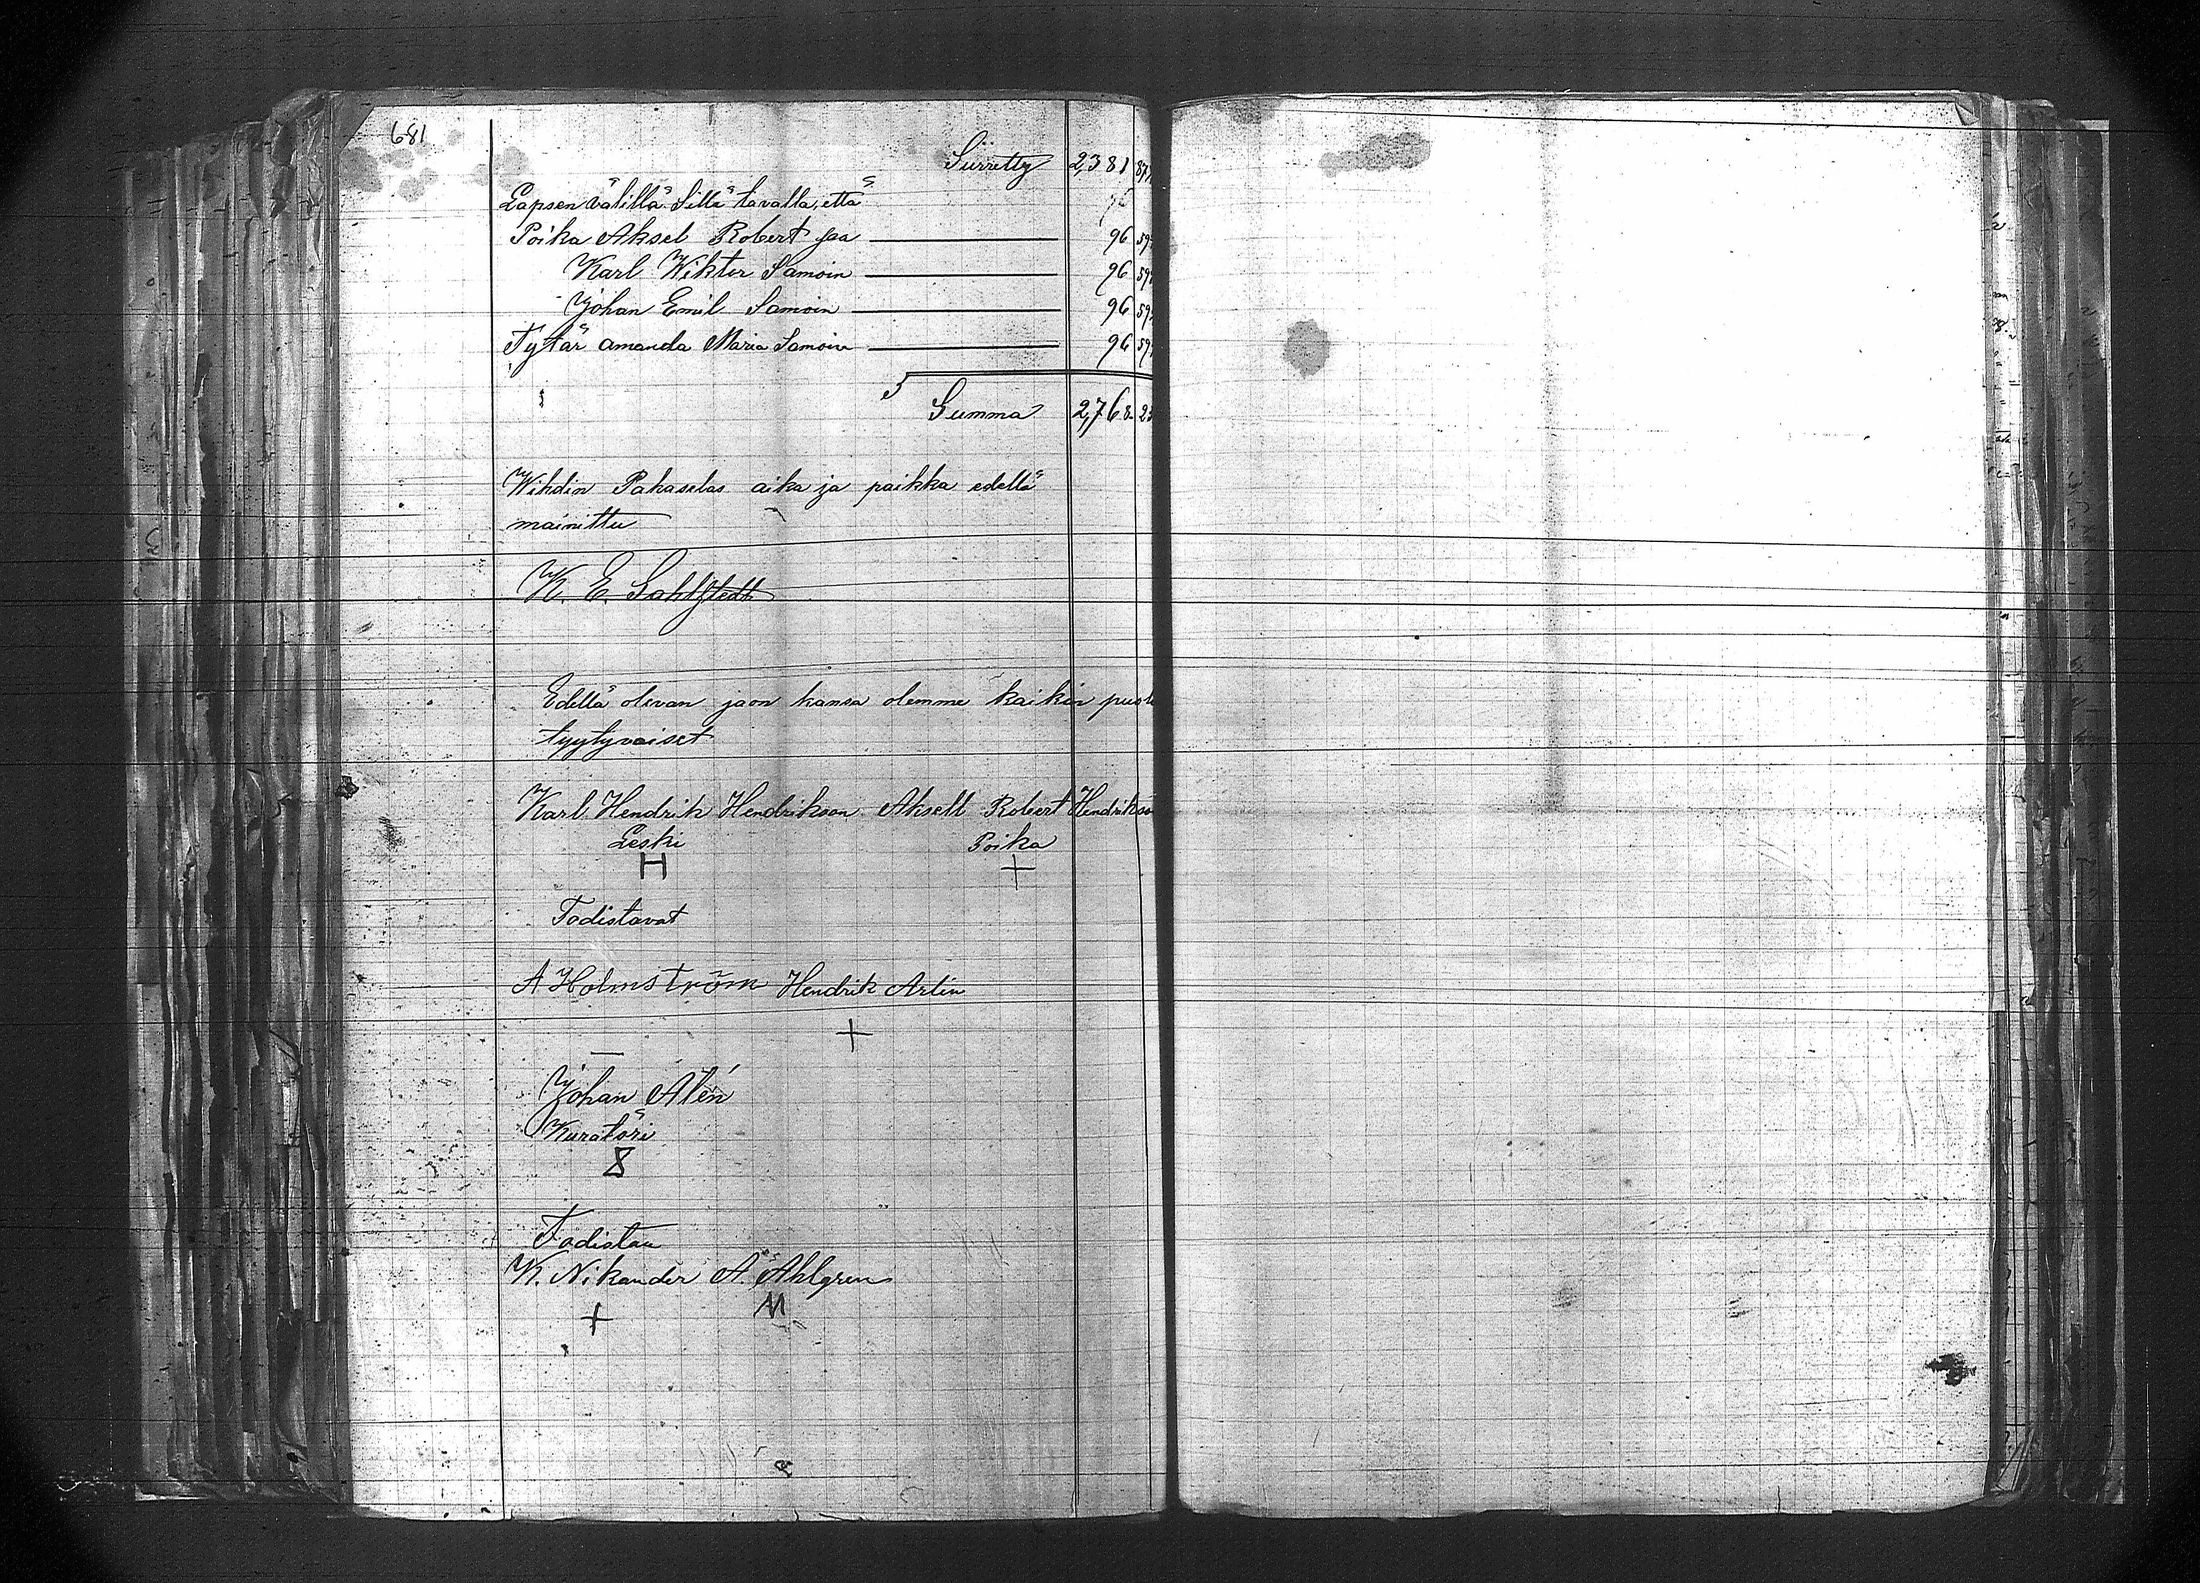 681
Siirretty 2,381 87
Lapsen välillä Sillä tavalla, että
Poika Aksel Robert saa 96 59
Karl Wiktor Samoin 96 59
Johan Emil Samoin 96 59
Tytär amanda Maria Samoin 96 59
Summa 2,768 23
Wihdin Pakaselas aika ja paikka edellä
mainittu
K. E. Sahlstedt
Edellä olevan jaon kansa olemme kaikin puol
tyytyvaiset
Karl Hendrik Hendrikson Aksell Robert Hendrikso
Leski Poika
H +
Todistavat
A Holmström Hendrik Arlin
+
Johan Alén
Kuratöri
8
Todistaa
K. Nikander A. Ahlgren
+ M